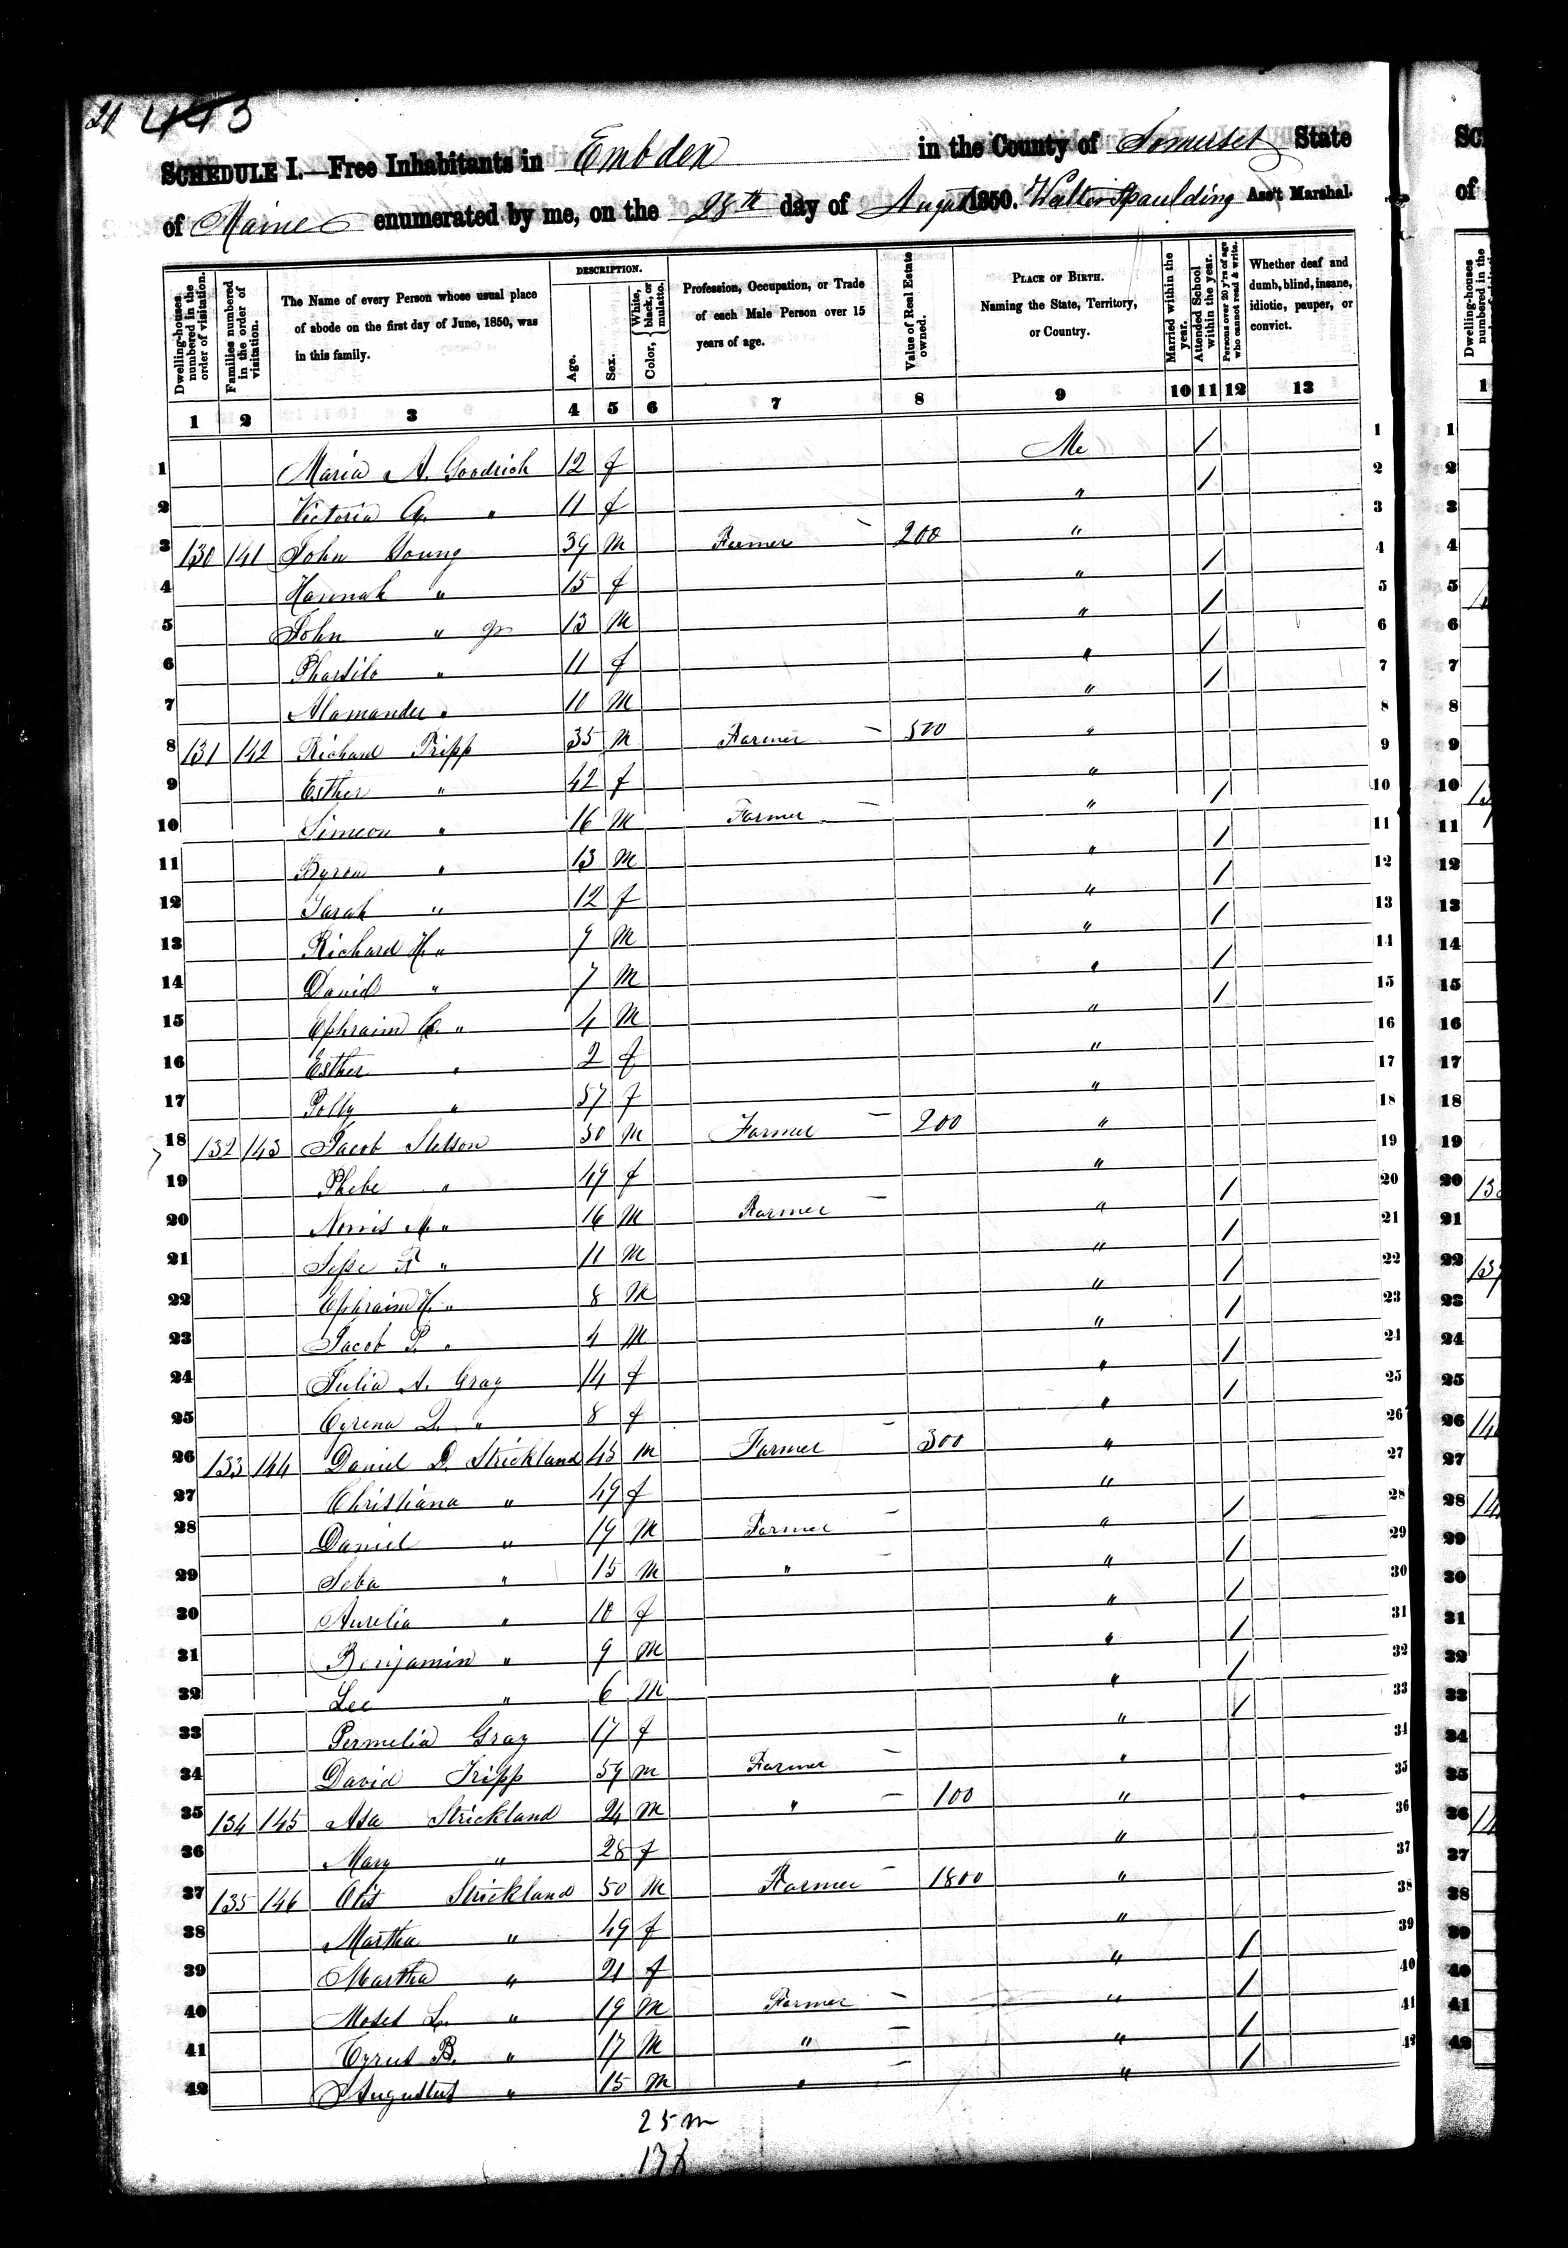 21 443
SCHEDULE I.—Free Inhabitants in Embden in the County of Somerset State
of Maine enumerated by me, on the 28th day of August 1850. Walter Spaulding Ass't Marshal.
Dwelling-houses numbered in the order of visitation.
Families numbered in the order of visitation.
The Name of every Person whose usual place of abode on the first day of June, 1850, was in this family.
DESCRIPTION.
Age.
Sex.
Color, White, black, or mulatto.
Profession, Occupation, or Trade of each Male Person over 15 years of age.
Value of Real Estate owned.
PLACE OF BIRTH. Naming the State, Territory, or Country.
Married within the year.
Attended School within the year.
Persons over 20 y'rs of age who cannot read & write.
Whether deaf and dumb, blind, insane, idiotic, pauper, or convict.
1 2 3 4 5 6 7 8 9 10 11 12 13
1 Maria A. Goodrich 12 f Me / 1
2 Victoria A. " 11 f " / 2
3 130 141 John Young 39 M Farmer — 200 " 3
4 Hannah " 15 f " / 4
5 John " Jr 13 M " / 5
6 Pharsilo " 11 f " / 6
7 Alamander " 10 M " / 7
8 131 142 Richard Tripp 35 M Farmer — 500 " 8
9 Esther " 42 f " 9
10 Simeon " 16 M Farmer — " / 10
11 Byron " 13 M " / 11
12 Sarah " 12 f " / 12
13 Richard H. " 9 M " / 13
14 David " 7 M " / 14
15 Ephraim C. " 4 M " / 15
16 Esther " 2 f " 16
17 Polly " 57 f " 17
18 132 143 Jacob Stetson 50 M Farmer — 200 " 18
19 Phebe " 49 f " 19
20 Norris M. " 16 M Farmer — " / 20
21 Jesse F. " 11 M " / 21
22 Ephraim H. " 8 M " / 22
23 Jacob P. " 4 M " / 23
24 Julia A. Gray 14 f " / 24
25 Cyrena L. " 8 f " / 25
26 133 144 Daniel D. Strickland 45 M Farmer — 300 " 26
27 Christiana " 49 f " 27
28 Daniel " 19 M Farmer — " / 28
29 Seba " 15 M " — " / 29
30 Aurelia " 10 f " / 30
31 Benjamin " 9 M " / 31
32 Lee " 6 M " / 32
33 Permelia Gray 17 f " / 33
34 David Tripp 59 M Farmer — " 34
35 134 145 Asa Strickland 24 M " — 100 " 35
36 Mary " 28 f " 36
37 135 146 Otis Strickland 50 M Farmer — 1800 " 37
38 Martha " 49 f " 38
39 Martha " 21 f " / 39
40 Moses L. " 19 M Farmer — " / 40
41 Cyrus B. " 17 M " — " / 41
42 Augustus " 15 M " — " / 42
25 m
17 f